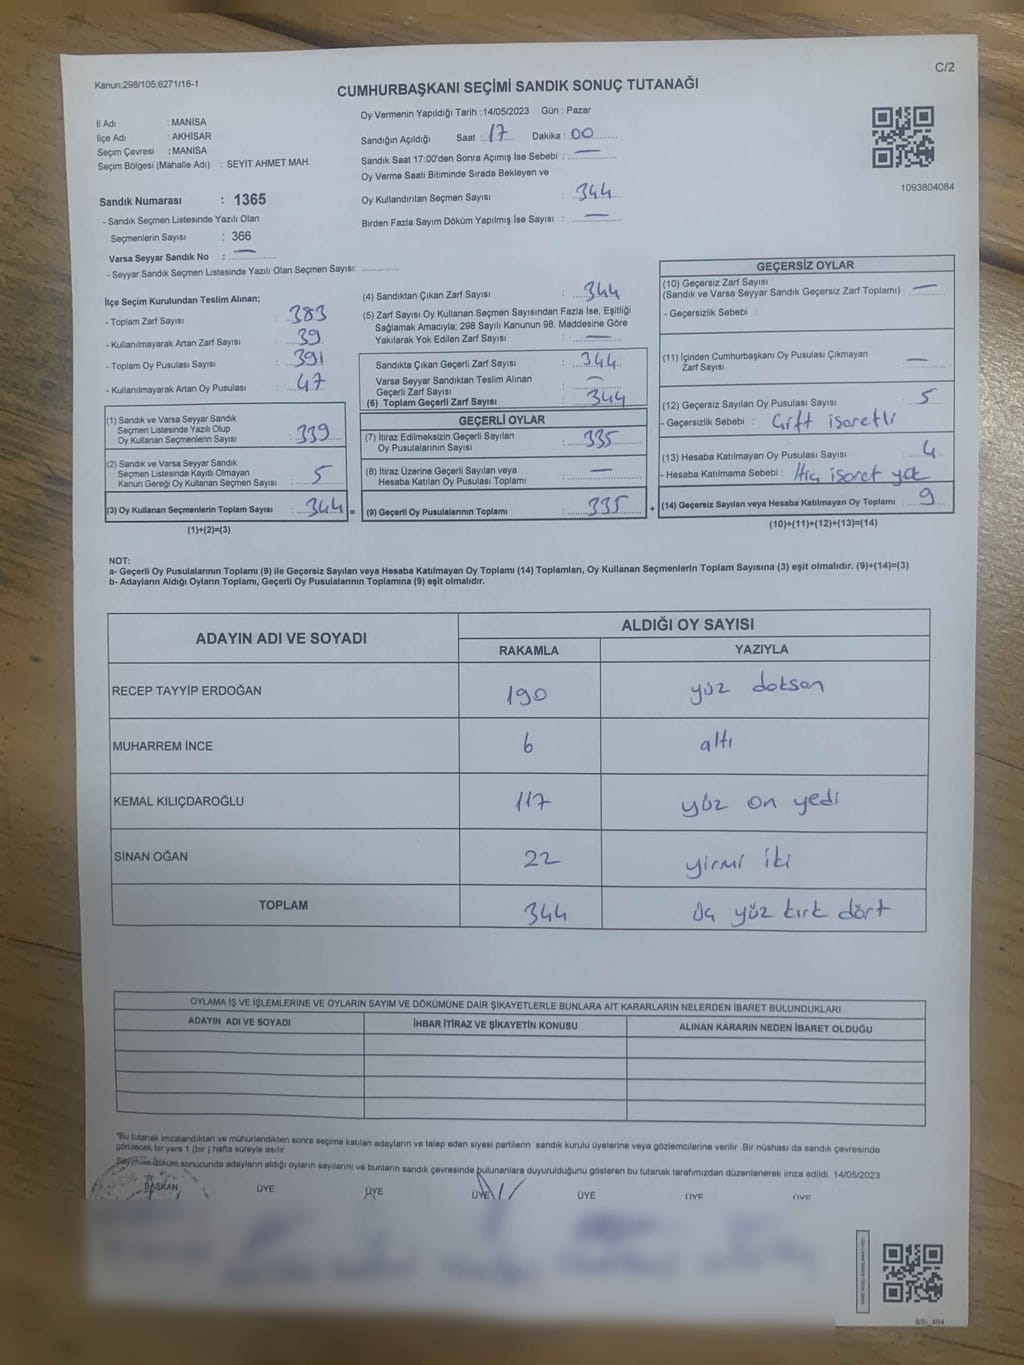 Kanun:298/105;6271/18-1
C/2
CUMHURBAŞKANI SEÇİMİ SANDIK SONUÇ TUTANAĞI
İl Adı : MANİSA
İlçe Adı : AKHİSAR
Seçim Çevresi : MANİSA
Seçim Bölgesi (Mahalle Adı) : SEYİT AHMET MAH.
Sandık Numarası : 1365
- Sandık Seçmen Listesinde Yazılı Olan
Seçmenlerin Sayısı : 366
Varsa Seyyar Sandık No : —
- Seyyar Sandık Seçmen Listesinde Yazılı Olan Seçmen Sayısı: ..............
Oy Vermenin Yapıldığı Tarih :14/05/2023 Gün : Pazar
Sandığın Açıldığı Saat : 17 Dakika : 00
Sandık Saat 17:00'den Sonra Açımış İse Sebebi : —
Oy Verme Saati Bitiminde Sırada Bekleyen ve
Oy Kullandırılan Seçmen Sayısı : 344
Birden Fazla Sayım Döküm Yapılmış İse Sayısı : —
1093804084
İlçe Seçim Kurulundan Teslim Alınan;
- Toplam Zarf Sayısı : 383
- Kullanılmayarak Artan Zarf Sayısı : 39
- Toplam Oy Pusulası Sayısı : 391
- Kullanılmayarak Artan Oy Pusulası : 47
(1) Sandık ve Varsa Seyyar Sandık
Seçmen Listesinde Yazılı Olup
Oy Kullanan Seçmenlerin Sayısı : 339
(2) Sandık ve Varsa Seyyar Sandık
Seçmen Listesinde Kayıtlı Olmayan
Kanun Gereği Oy Kullanan Seçmen Sayısı : 5
(3) Oy Kullanan Seçmenlerin Toplam Sayısı : 344 =
(1)+(2)=(3)
(4) Sandıktan Çıkan Zarf Sayısı : 344
(5) Zarf Sayısı Oy Kullanan Seçmen Sayısından Fazla İse, Eşitliği
Sağlamak Amacıyla; 298 Sayılı Kanunun 98. Maddesine Göre
Yakılarak Yok Edilen Zarf Sayısı : —
Sandıkta Çıkan Geçerli Zarf Sayısı : 344
Varsa Seyyar Sandıktan Teslim Alınan
Geçerli Zarf Sayısı : —
(6) Toplam Geçerli Zarf Sayısı : 344
GEÇERLİ OYLAR
(7) İtiraz Edilmeksizin Geçerli Sayılan
Oy Pusulalarının Sayısı : 335
(8) İtiraz Üzerine Geçerli Sayılan veya
Hesaba Katılan Oy Pusulası Toplamı : —
(9) Geçerli Oy Pusulalarının Toplamı : 335 +
GEÇERSİZ OYLAR
(10) Geçersiz Zarf Sayısı
(Sandık ve Varsa Seyyar Sandık Geçersiz Zarf Toplamı) : —
- Geçersizlik Sebebi :
(11) İçinden Cumhurbaşkanı Oy Pusulası Çıkmayan
Zarf Sayısı : —
(12) Geçersiz Sayılan Oy Pusulası Sayısı : 5
- Geçersizlik Sebebi : Çift işaretli
(13) Hesaba Katılmayan Oy Pusulası Sayısı : 4
- Hesaba Katılmama Sebebi : Hiç işaret yok
(14) Geçersiz Sayılan veya Hesaba Katılmayan Oy Toplamı : 9
(10)+(11)+(12)+(13)=(14)
NOT:
a- Geçerli Oy Pusulalarının Toplamı (9) ile Geçersiz Sayılan veya Hesaba Katılmayan Oy Toplamı (14) Toplamları, Oy Kullanan Seçmenlerin Toplam Sayısına (3) eşit olmalıdır. (9)+(14)=(3)
b- Adayların Aldığı Oyların Toplamı, Geçerli Oy Pusulalarının Toplamına (9) eşit olmalıdır.
ADAYIN ADI VE SOYADI ALDIĞI OY SAYISI
RAKAMLA YAZIYLA
RECEP TAYYİP ERDOĞAN 190 yüz doksan
MUHARREM İNCE 6 altı
KEMAL KILIÇDAROĞLU 117 yüz on yedi
SİNAN OĞAN 22 yirmi iki
TOPLAM 344 üç yüz kırk dört
OYLAMA İŞ VE İŞLEMLERİNE VE OYLARIN SAYIM VE DÖKÜMÜNE DAİR ŞİKAYETLERLE BUNLARA AİT KARARLARIN NELERDEN İBARET BULUNDUKLARI
ADAYIN ADI VE SOYADI İHBAR İTİRAZ VE ŞİKAYETİN KONUSU ALINAN KARARIN NEDEN İBARET OLDUĞU
"Bu tutanak imzalandıktan ve mühürlendikten sonra seçime katılan adayların ve talep eden siyasi partilerin sandık kurulu üyelerine veya gözlemcilerine verilir. Bir nüshası da sandık çevresinde
görülecek bir yere 1 (bir ) hafta süreyle asılır.
Sayım ve döküm sonucunda adayların aldığı oyların sayılarını ve bunların sandık çevresinde bulunanlara duyurulduğunu gösteren bu tutanak tarafımızdan düzenlenerek imza edildi. 14/05/2023
BAŞKAN ÜYE ÜYE ÜYE ÜYE ÜYE ÜYE